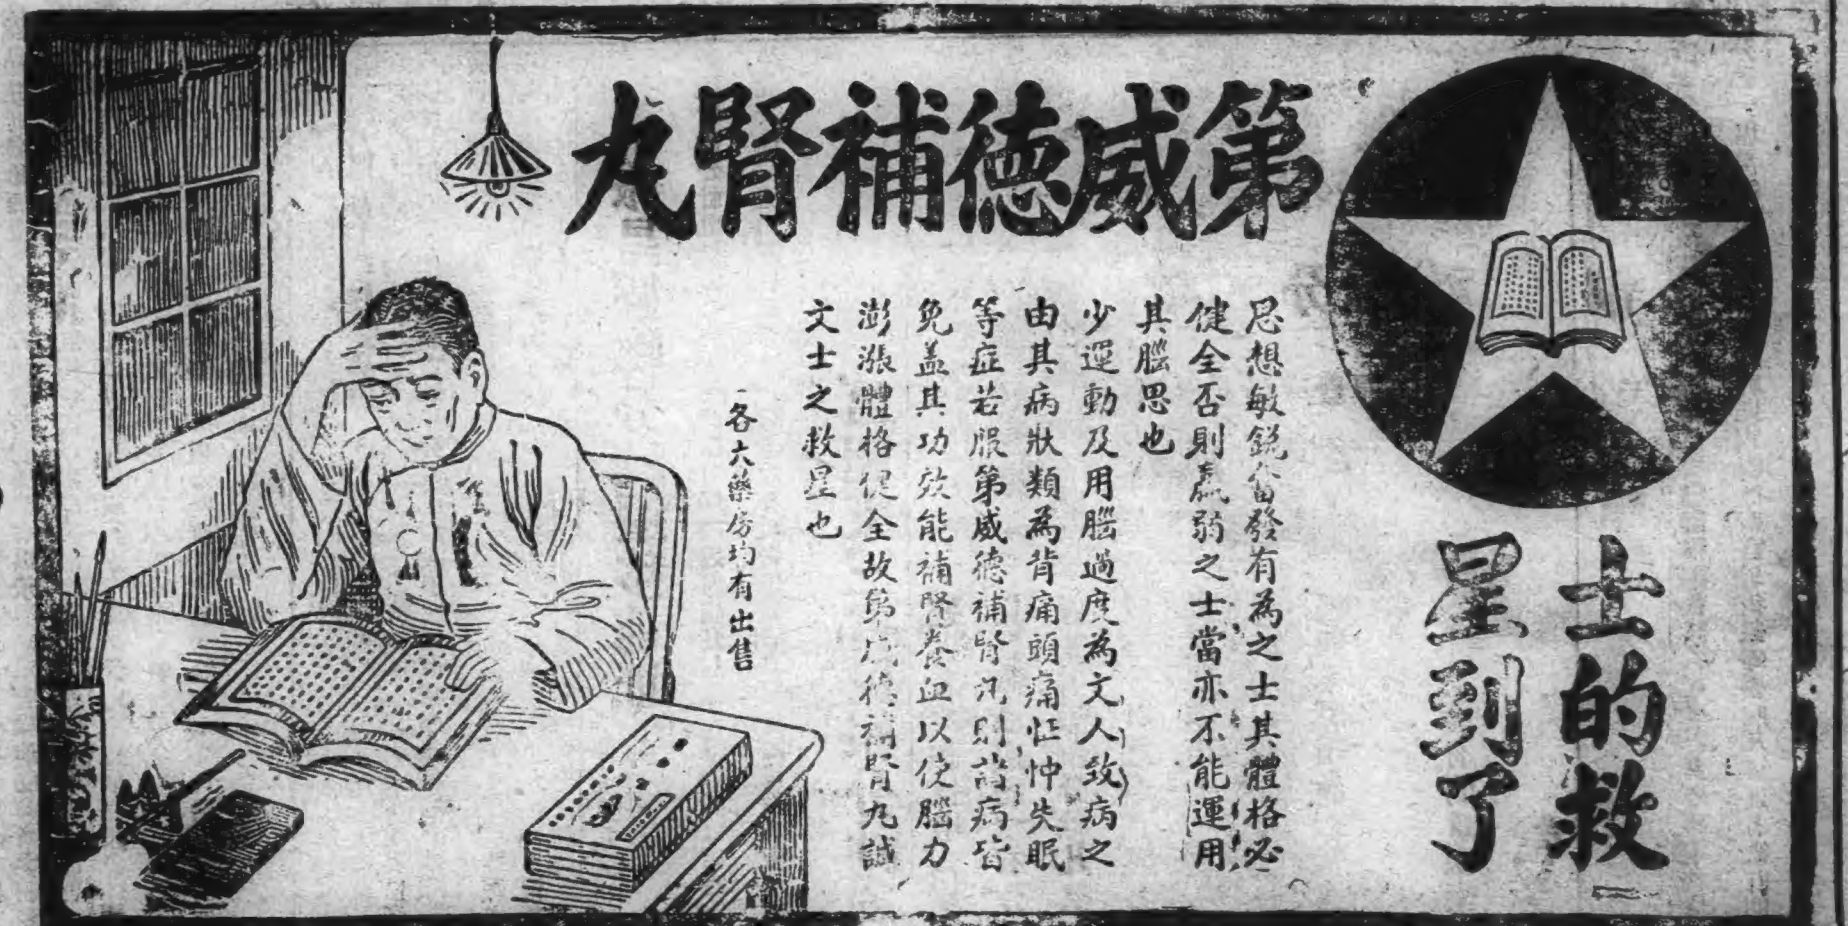 第威德補腎丸
士的救
星到了
思想敏銳奮發有為之士其體格必
健全否則羸弱之士當亦不能運用
其腦思也
少運動及用腦過度為文人致病之
由其病狀類為背痛頭痛怔忡失眠
等症若服第威德補腎丸則諸病皆
免盖其功效能補腎養血以使腦力
澎漲體格健全故第威德補腎丸誠
文士之救星也
各大藥房均有出售